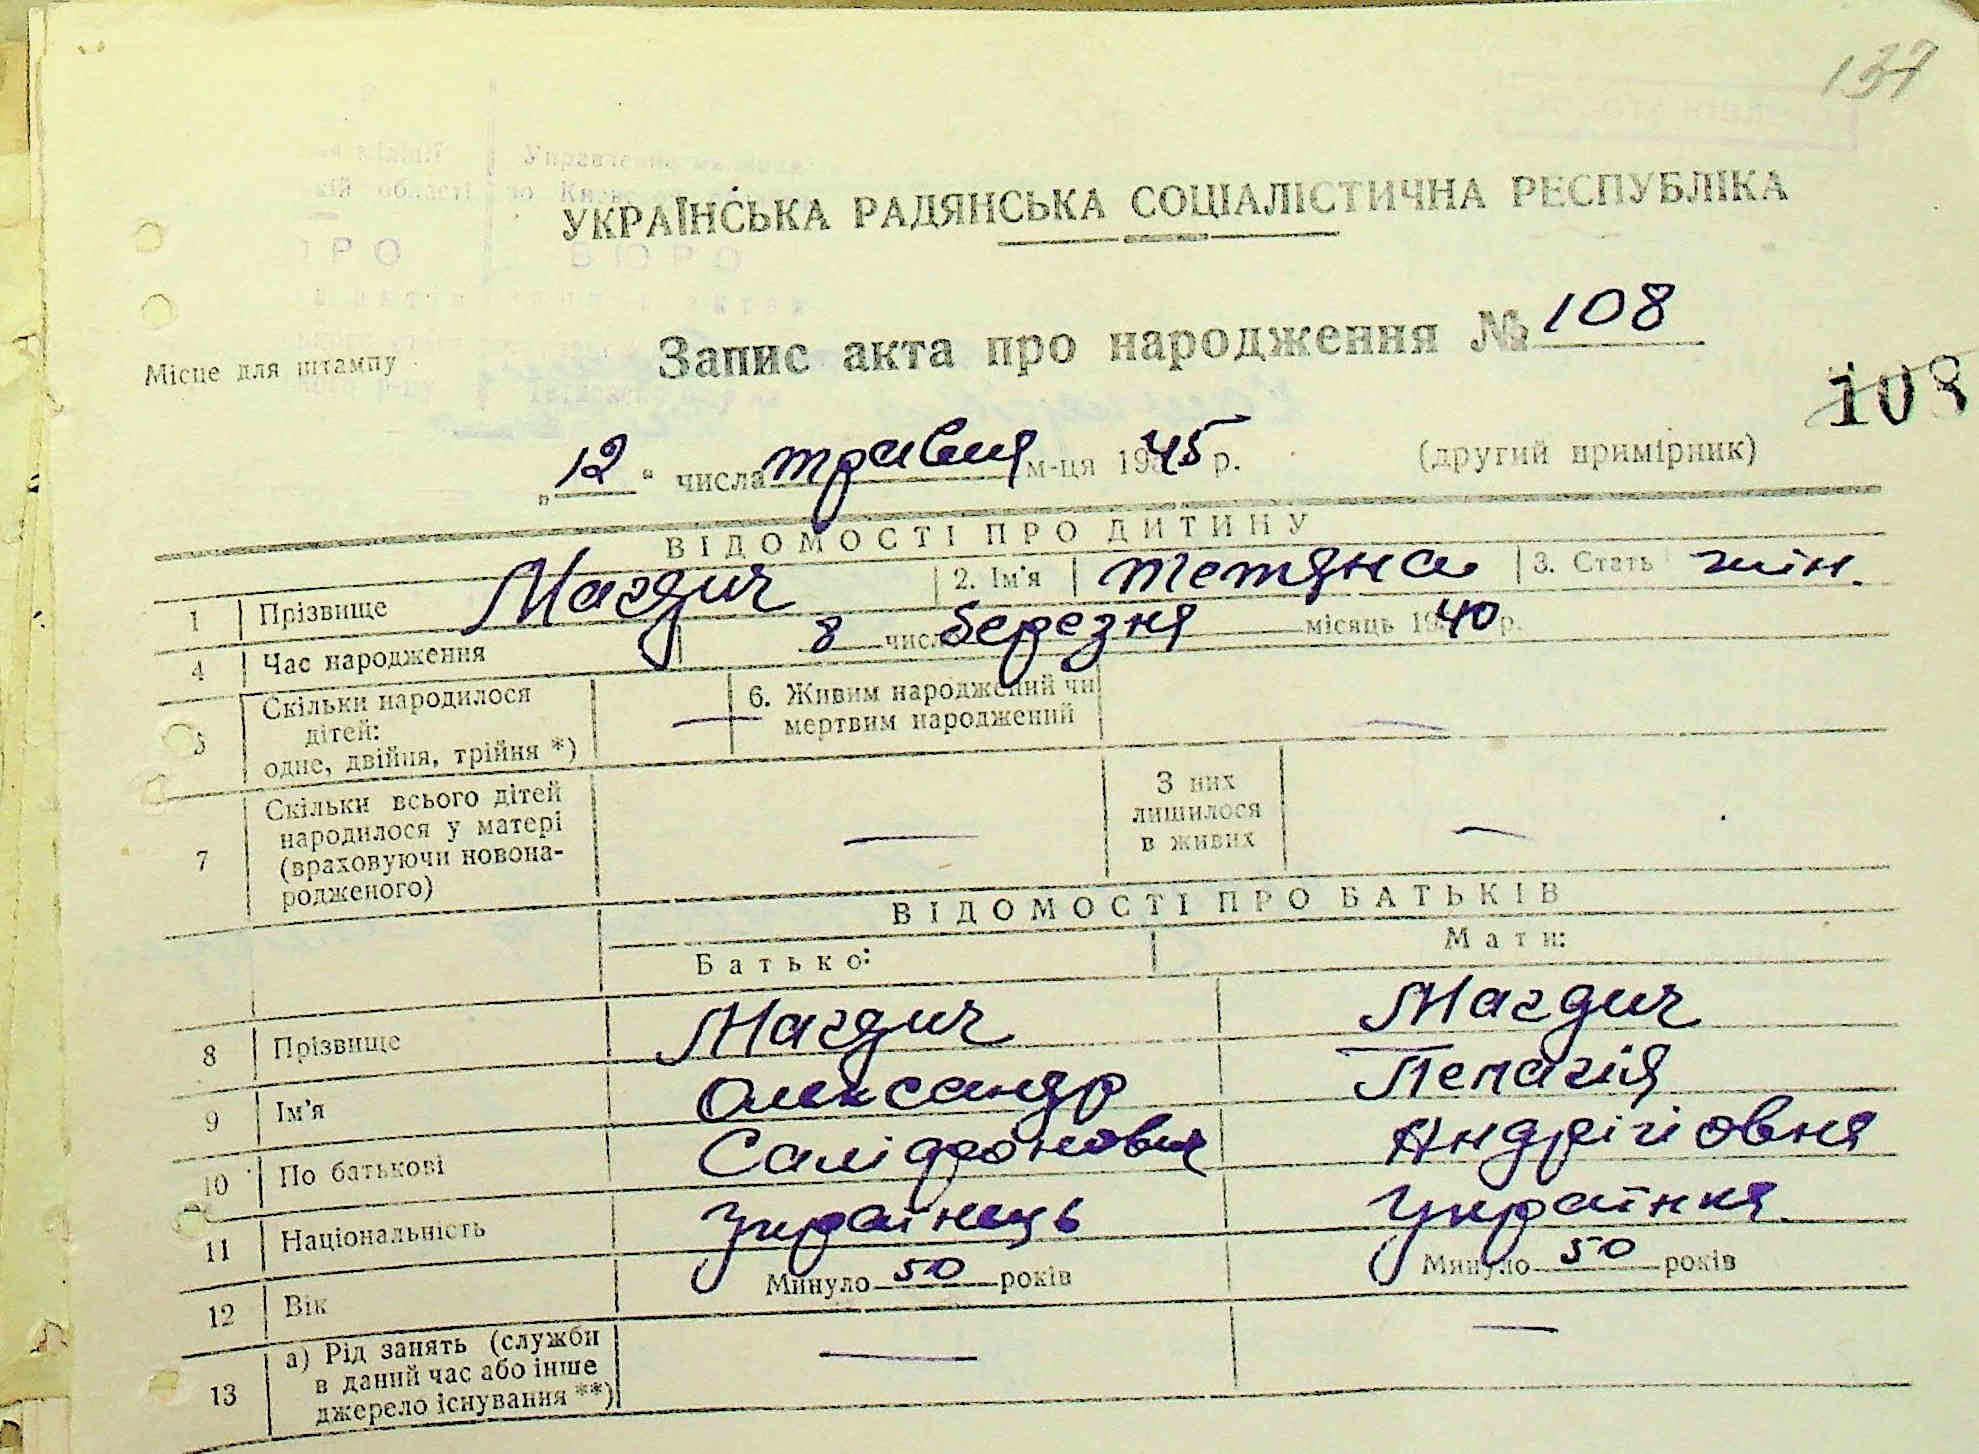 137
УКРАЇНСЬКА РАДЯНСЬКА СОЦІАЛІСТИЧНА РЕСПУБЛІКА
Місце для штампу
Запис акта про народження № 108
108
„12“ числа травня м-ця 1945 р. (другий примірник)
ВІДОМОСТІ ПРО ДИТИНУ
1 Прізвище Магдич 2. Ім'я Тетяна 3. Стать жін.
4 Час народження 8 числа березня місяць 1940 р.
5 Скільки народилося дітей: одне, двійня, трійня *) — 6. Живим народжений чи мертвим народжений —
7 Скільки всього дітей народилося у матері (враховуючи новонародженого) — З них лишилося в живих —
ВІДОМОСТІ ПРО БАТЬКІВ
Батько: Мати:
8 Прізвище Магдич Магдич
9 Ім'я Олександр Пелагія
10 По батькові Андріївна
11 Національність Українець Українка
12 Вік Минуло 50 років Минуло 50 років
13 а) Рід занять (служби в даний час або інше джерело існування **) — —